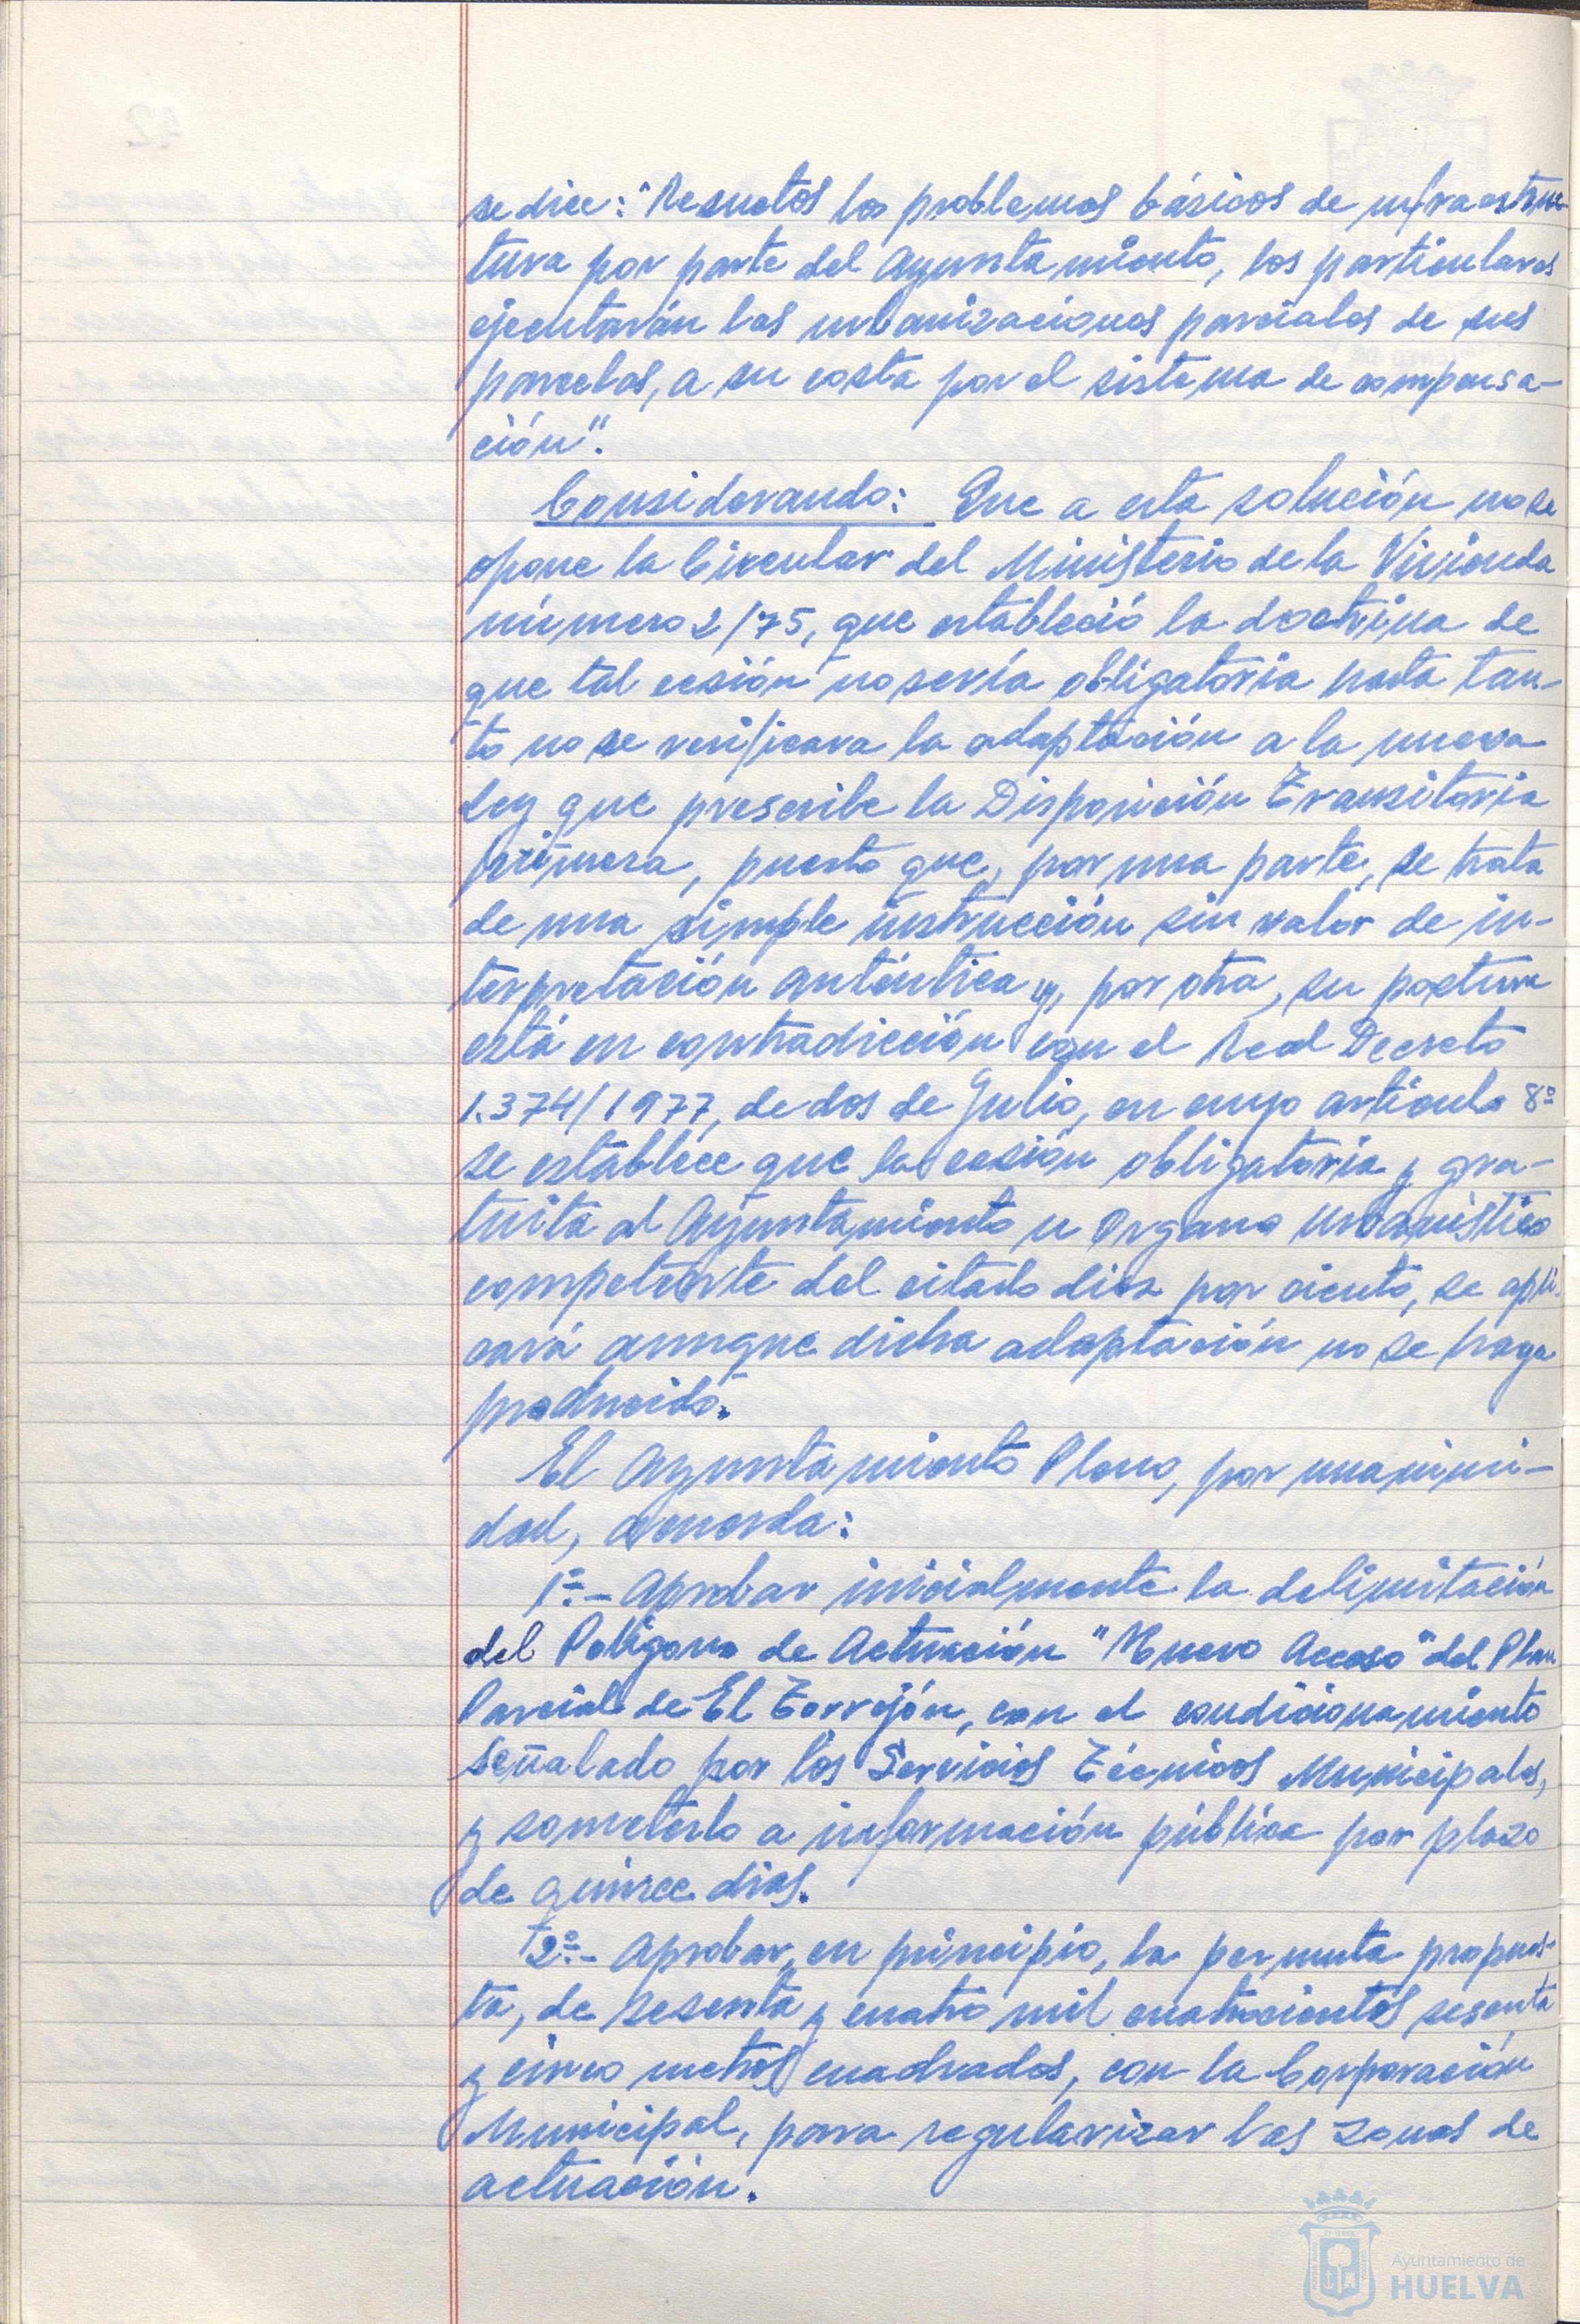 se dice: "Resueltos los problemas básicos de infraestruc-
tura por parte del Ayuntamiento, los particulares
ejecutarán las urbanizaciones parciales de sus
parcelas, a su costa por el sistema de compensa-
ción".
Considerando: Que a esta solución no se
opone la Circular del Ministerio de la Vivienda
número 2/75, que estableció la doctrina de
que tal cesión no sería obligatoria hasta tan-
to no se verificara la adaptación a la nueva
Ley que prescribe la Disposición Transitoria
primera, puesto que, por una parte, se trata
de una simple instrucción sin valor de in-
terpretación auténtica y, por otra, su postura
está en contradicción con el Real Decreto
1.374/1977, de dos de Julio, en cuyo artículo 8º
se establece que la cesión obligatoria y gra-
tuita al Ayuntamiento u Organo urbanístico
competente del citado diez por ciento, se apli-
cará aunque dicha adaptación no se haya
producido.
El Ayuntamiento Pleno, por unanimi-
dad, acuerda:
1º.- Aprobar inicialmente la delimitación
del Polígono de Actuación "Nuevo Acceso" del Plan
Parcial de El Torrejón, con el condicionamiento
señalado por los Servicios Técnicos Municipales,
y someterlo a información pública por plazo
de quince dias.
2º.- Aprobar, en principio, la permuta propues-
ta, de sesenta y cuatro mil cuatrocientos sesenta
y cinco metros cuadrados, con la Corporación
Municipal, para regularizar las zonas de
actuación.
Ayuntamiento de
HUELVA